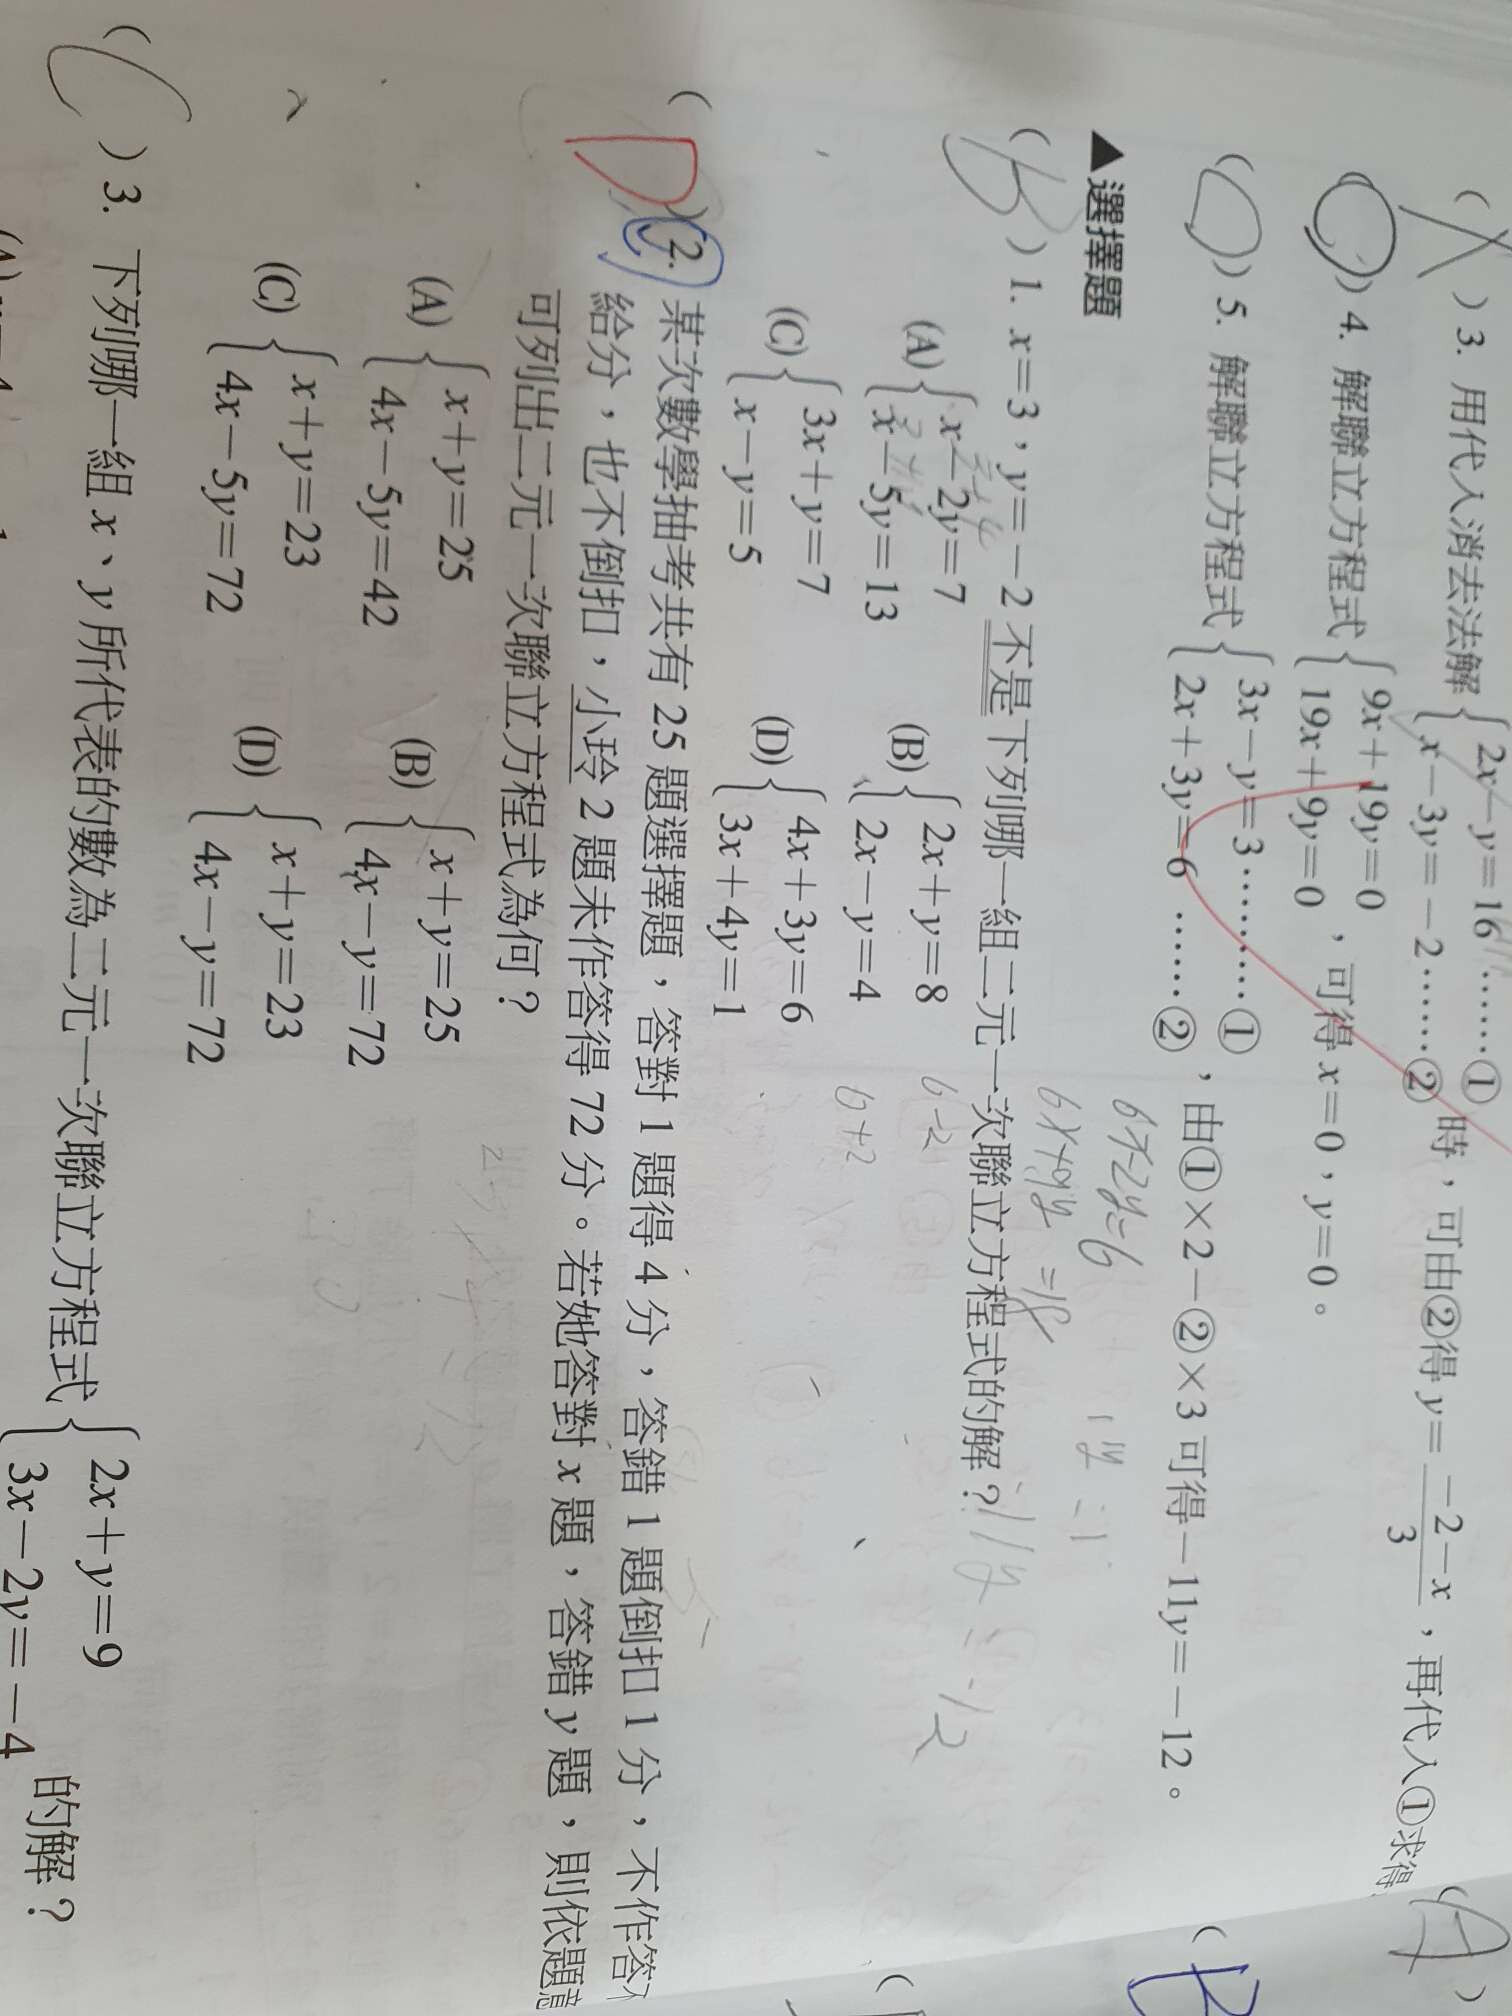 ( ╳ ) 3. 用代入消去法解 { 2x－y＝16 ……① x－3y＝－2 ……② 時，可由②得 y＝(－2－x)/3，再代入①求得
( ○ ) 4. 解聯立方程式 { 9x＋19y＝0 19x＋9y＝0 ，可得 x＝0，y＝0。
( ○ ) 5. 解聯立方程式 { 3x－y＝3 ………① 2x＋3y＝6 ……② ，由①×2－②×3 可得－11y＝－12。
6x-2y=6
6x+9y=18
-11y=-12
▲選擇題
( B ) 1. x＝3，y＝－2 不是下列哪一組二元一次聯立方程式的解？
(A) { x－2y＝7 x－5y＝13
(B) { 2x＋y＝8 2x－y＝4
6-2
6+2
(C) { 3x＋y＝7 x－y＝5
(D) { 4x＋3y＝6 3x＋4y＝1
( D ) 2. 某次數學抽考共有 25 題選擇題，答對 1 題得 4 分，答錯 1 題倒扣 1 分，不作答不
給分，也不倒扣，小玲 2 題未作答得 72 分。若她答對 x 題，答錯 y 題，則依題意
可列出二元一次聯立方程式為何？
(A) { x＋y＝25 4x－5y＝42
(B) { x＋y＝25 4x－y＝72
(C) { x＋y＝23 4x－5y＝72
(D) { x＋y＝23 4x－y＝72
( ) 3. 下列哪一組 x、y 所代表的數為二元一次聯立方程式 { 2x＋y＝9 3x－2y＝－4 的解？